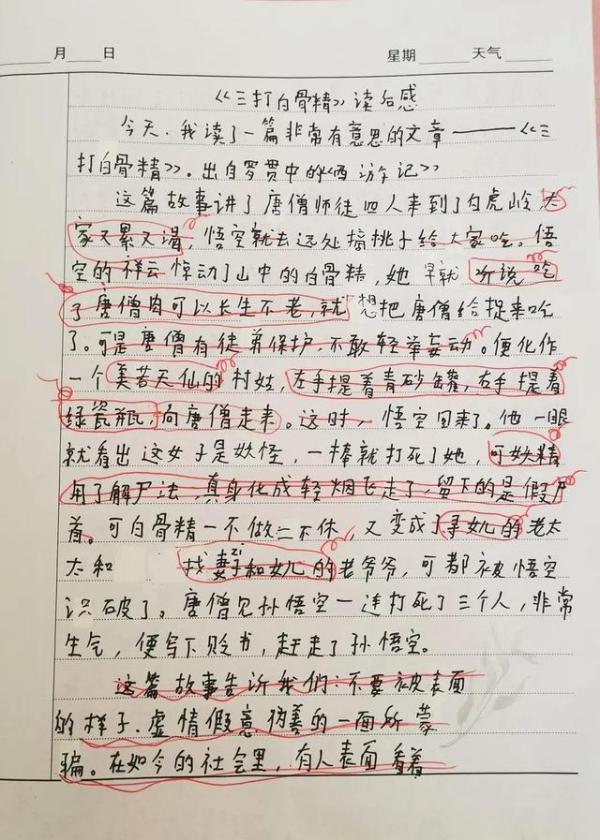 月 日 星期 天气
《三打白骨精》读后感
今天,我读了一篇非常有意思的文章——《三
打白骨精》。出自罗贯中的《西游记》
这篇故事讲了唐僧师徒四人来到了白虎岭,大
家又累又渴,悟空就去远处摘桃子给大家吃。悟
空的祥云惊动了山中的白骨精,她早就听说吃
了唐僧肉可以长生不老,就想把唐僧给捉来吃
了。可是唐僧有徒弟保护,不敢轻举妄动。便化作
一个美若天仙的村姑,左手提着青砂罐,右手提着
绿瓷瓶,向唐僧走来。这时,悟空回来了。他一眼
就看出这女子是妖怪,一棒就打死了她,可妖精
用了解尸法,真身化成轻烟飞走了,留下的是假尸
首。可白骨精一不做二不休,又变成了寻女儿的老太
太和 找妻子和女儿的老爷爷,可都被悟空
识破了。唐僧见孙悟空一连打死了三个人,非常
生气,便写下贬书,赶走了孙悟空。
这篇故事告诉我们:不要被表面
的样子、虚情假意、伪善的一面所蒙
骗。在如今的社会里,有人表面看着